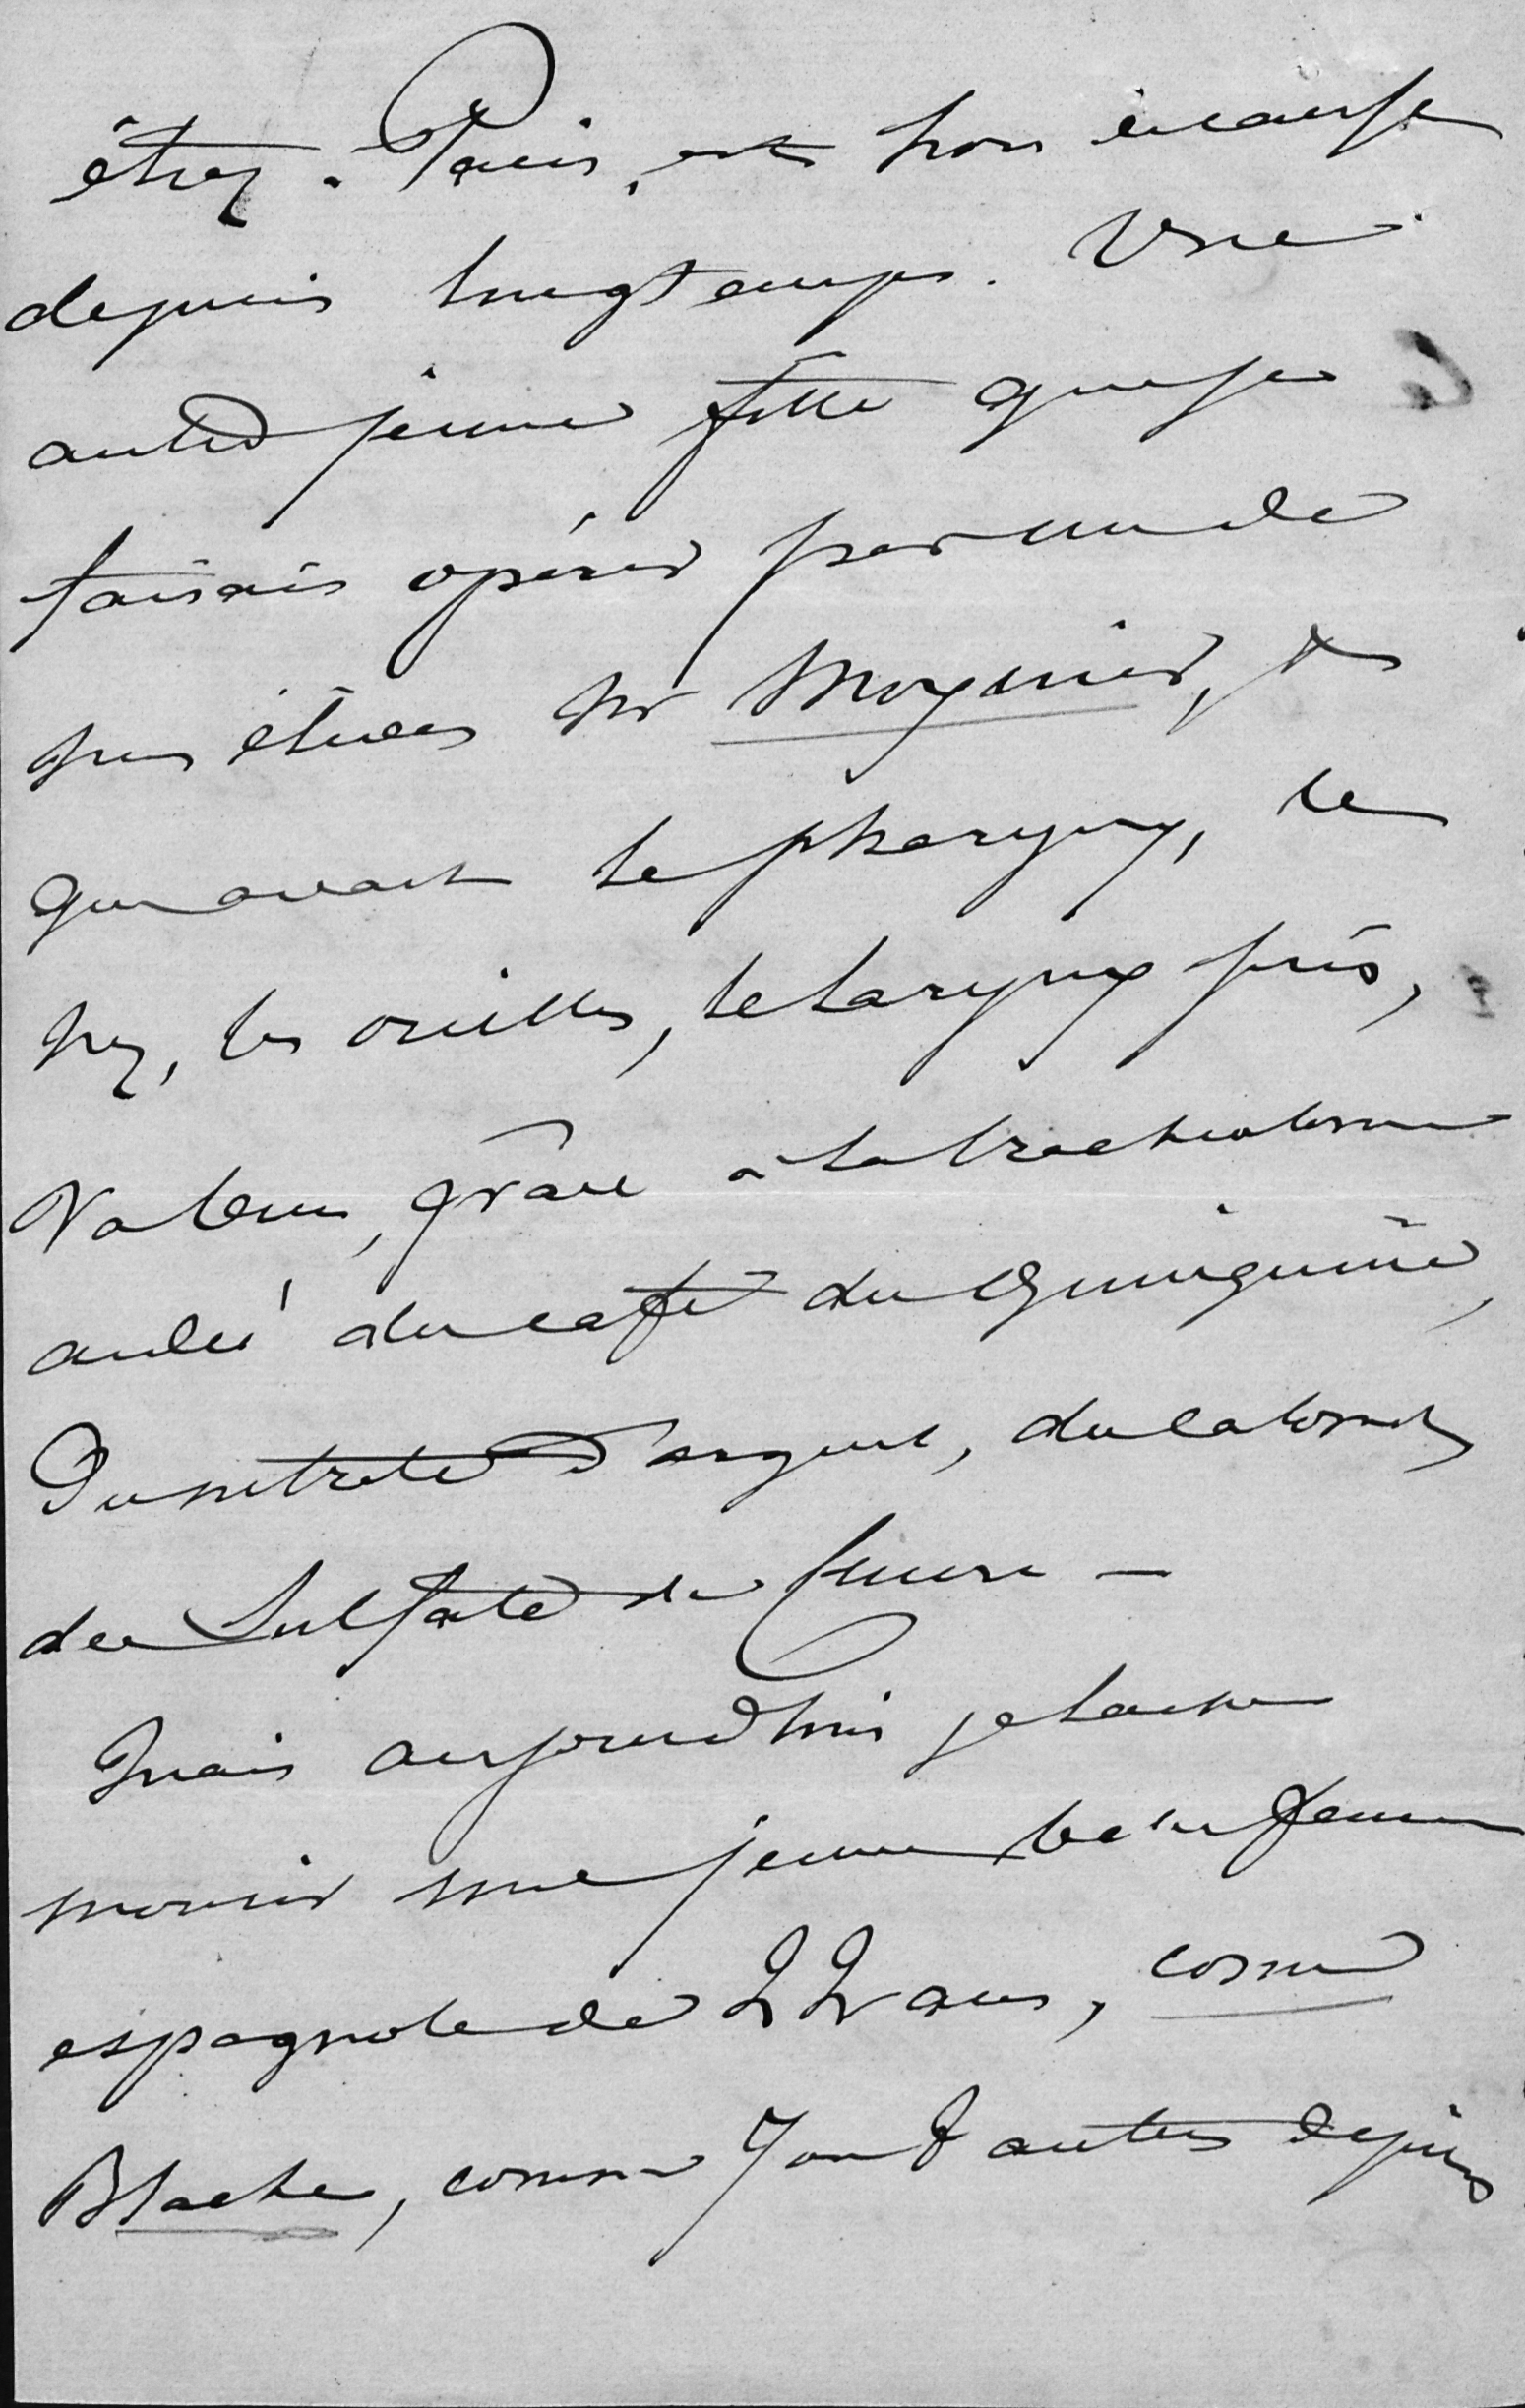 êtes. Paris est hors de cause
depuis longtemps. Une
autre jeune fille que je
faisais opérer par un de
mes élèves Mr Moynier, et
qui avait le pharynx, le
nez, les oreilles, le larynx pris,
va bien, grâce à la tracheotomie
aidée du café du quinquina,
Du nitrate d'argent, du calomel,
du Sulfate de cuivre —
Mais aujourd'hui je laisse
mourir une jeune belle femme
espagnole de 22 ans, comme
Blache, comme Tant autres depuis